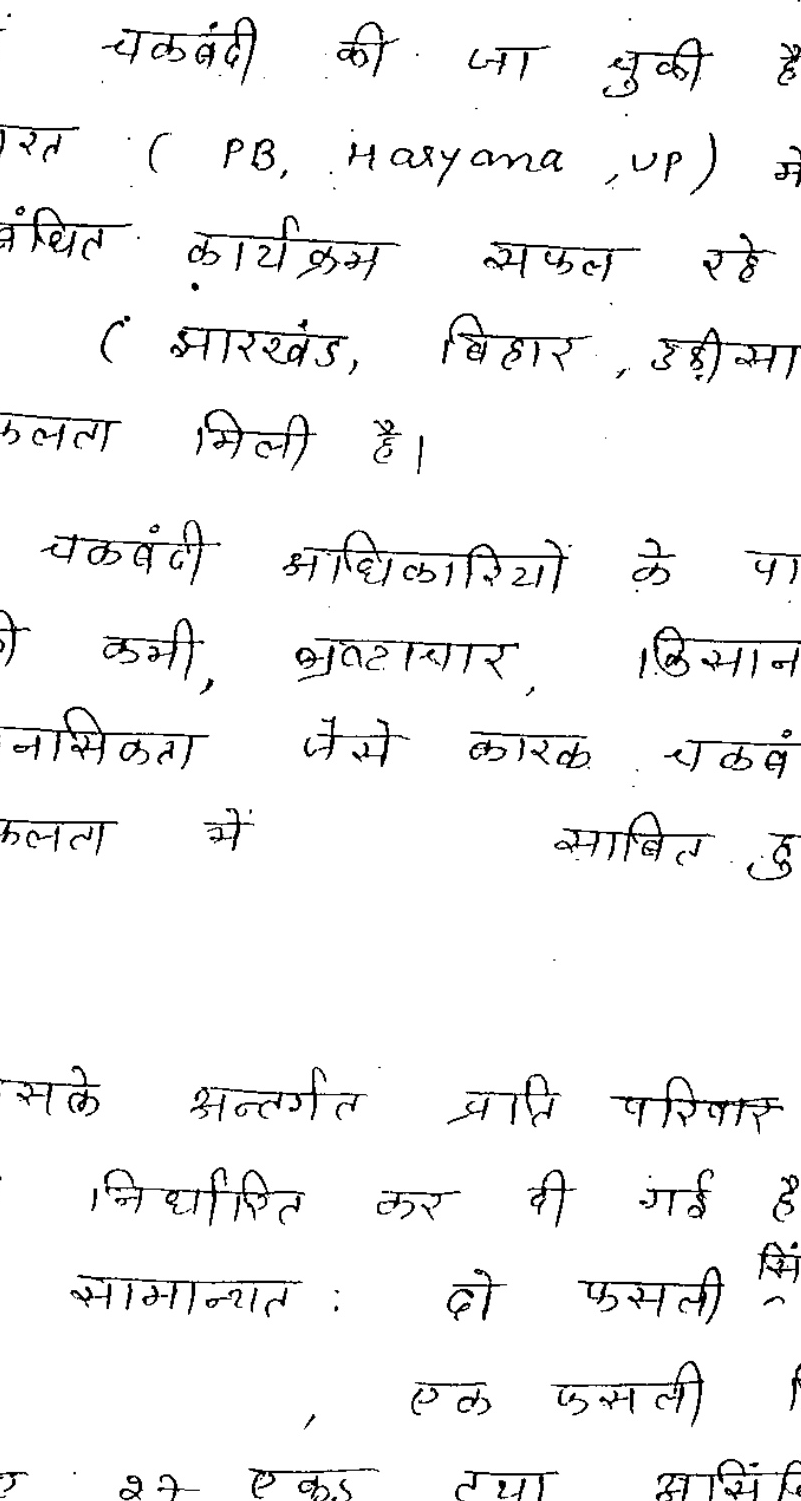 चकबंदी की जा चुकी है
रत ( PB, Haryana, UP) में
बंधित कार्यक्रम सफल रहे
( झारखंड, बिहार, उड़ीसा
फलता मिली है।
चकबंदी अधिकारियों के पा
की कमी, भ्रष्टाचार, किसान
नसिकता जैसे कारक चकबं
फलता में साबित हु
सके अन्तर्गत प्रति परिवार
निर्धारित कर दी गई है
सामान्यत: दो फसली सिं
, एक फसली
27 एकड तथा असिंचि